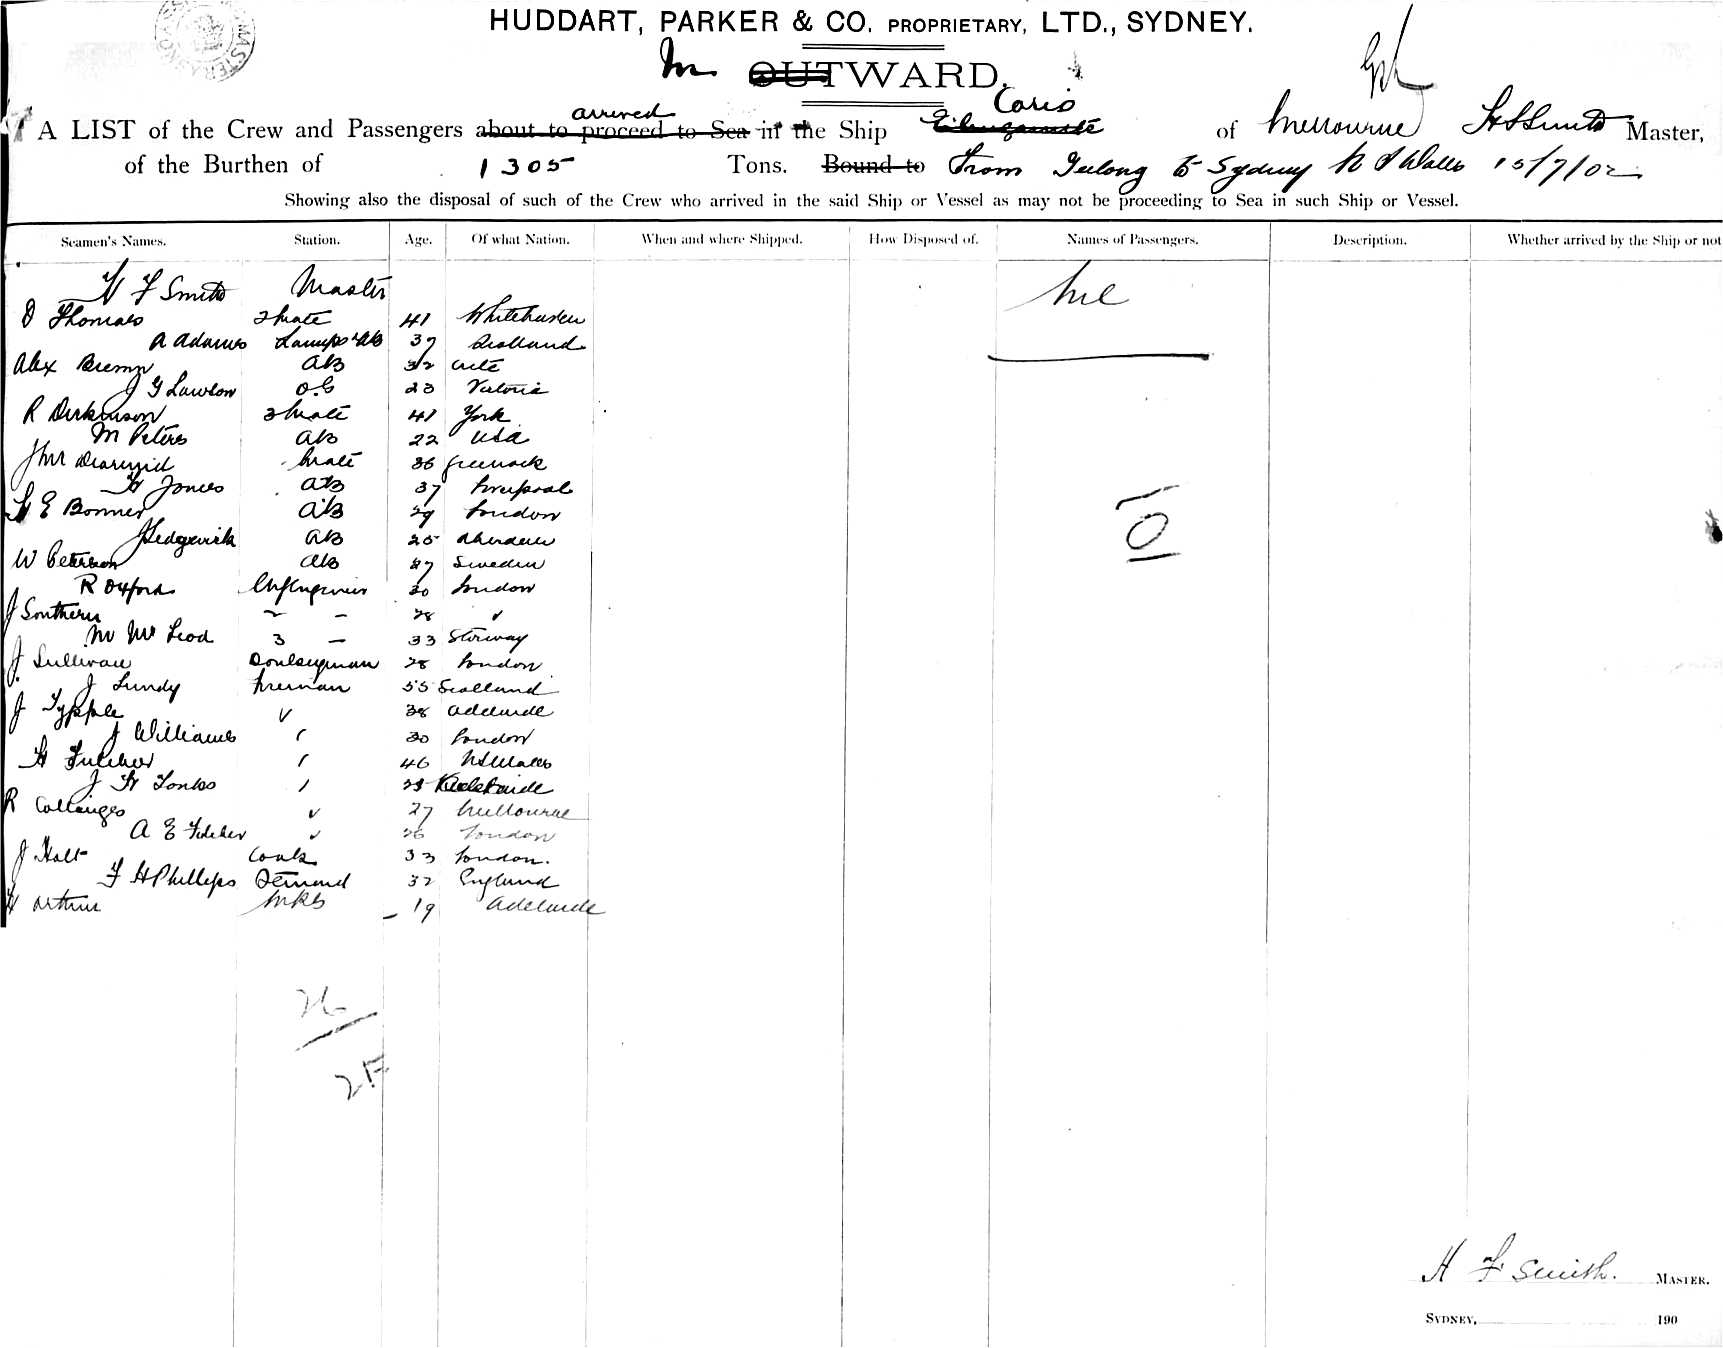 HUDDART, PARKER & CO. PROPRIETARY, LTD., SYDNEY.
In OUTWARD.
arrived Corio
A LIST of the Crew and Passengers about to proceed to Sea in the Ship of Melbourne Master,
of the Burthen of 1305 Tons. Bound to From Geelong to Sydney N S Wales 15/7/02
Showing also the disposal of such of the Crew who arrived in the said Ship or Vessel as may not be proceeding to Sea in such Ship or Vessel.
Seamen's Names. Station. Age. Of what Nation. When and where Shipped. How Disposed of. Names of Passengers. Description. Whether arrived by the Ship or not
H F Smith Master Nil
D Thomas 2 Mate 41 Whitehaven
A Adams Lamps & AB 37 Scotland
Alex AB 32
J G Lawson O.S 23 Victoria
R Dickinson 3 Mate 41 York
M Peters AB 22 USA
Mate 36 Greenock
H Jones AB 37 Liverpool
H E Bonner AB 29 London
J Sedgwick AB 25 Aberdeen
W Peterson AB 27 Sweden
R Oxford Chf Engineer 30 London
J Southern 2 - 28 "
M McLeod 3 - 33
J Sullivan Donkeyman 28 London
J Lundy Fireman 55 Scotland
J 38 Adelaide
J Williams 30 London
H Fulcher 46 N S Wales
J H Tonks Adelaide
R Collinges 27 Melbourne
A E 26 London
J Holt Cook 33 London.
F H Phillips Steward 32 England
H Arthur 19 Adelaide
O
26
25
H F Smith. MASTER.
SYDNEY, 190